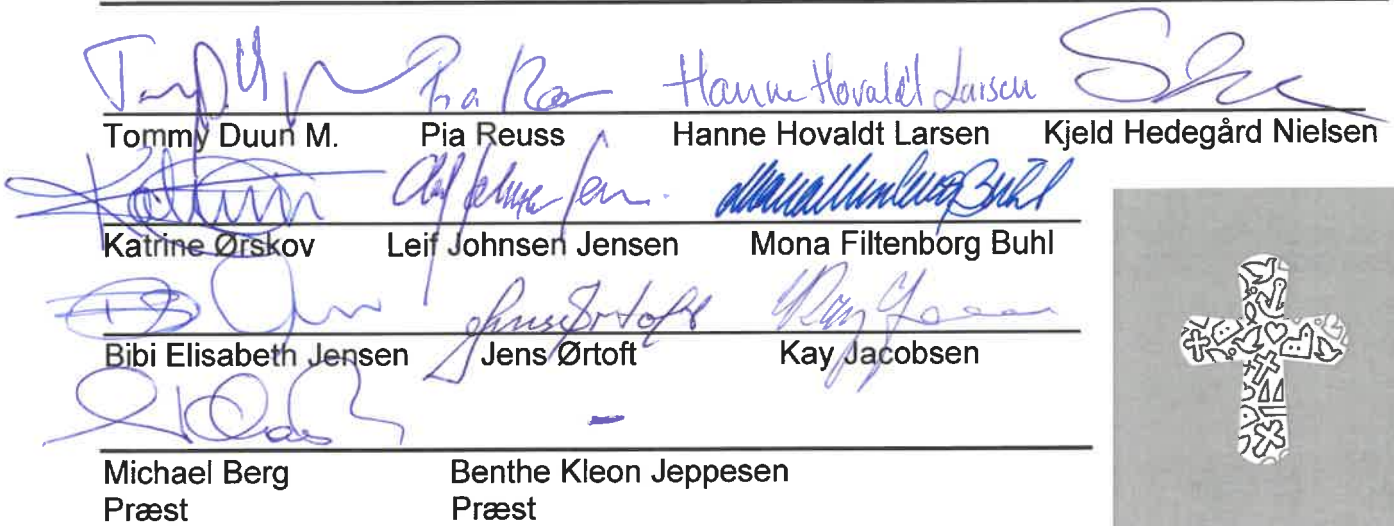 Hanne Hovaldt Larsen
Tommy Duun M. Pia Reuss Hanne Hovaldt Larsen Kjeld Hedegård Nielsen
Katrine Ørskov Leif Johnsen Jensen Mona Filtenborg Buhl
Jens Ørtoft
Bibi Elisabeth Jensen Jens Ørtoft Kay Jacobsen
Michael Berg Benthe Kleon Jeppesen
Præst Præst